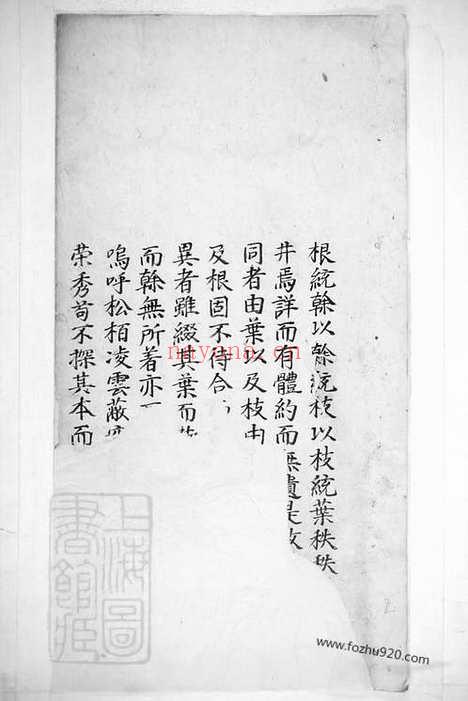 根統榦以榦統枝以枝統葉秩秩
井焉詳而有體約而無遺是故
同者由葉以及枝由
及根固不待合
異者雖綴其葉而
而榦無所著亦
嗚呼松栢凌雲蔽
荣秀苟不探其本而
上海圖書館藏
nayona.cn
www.fozhu920.com
2